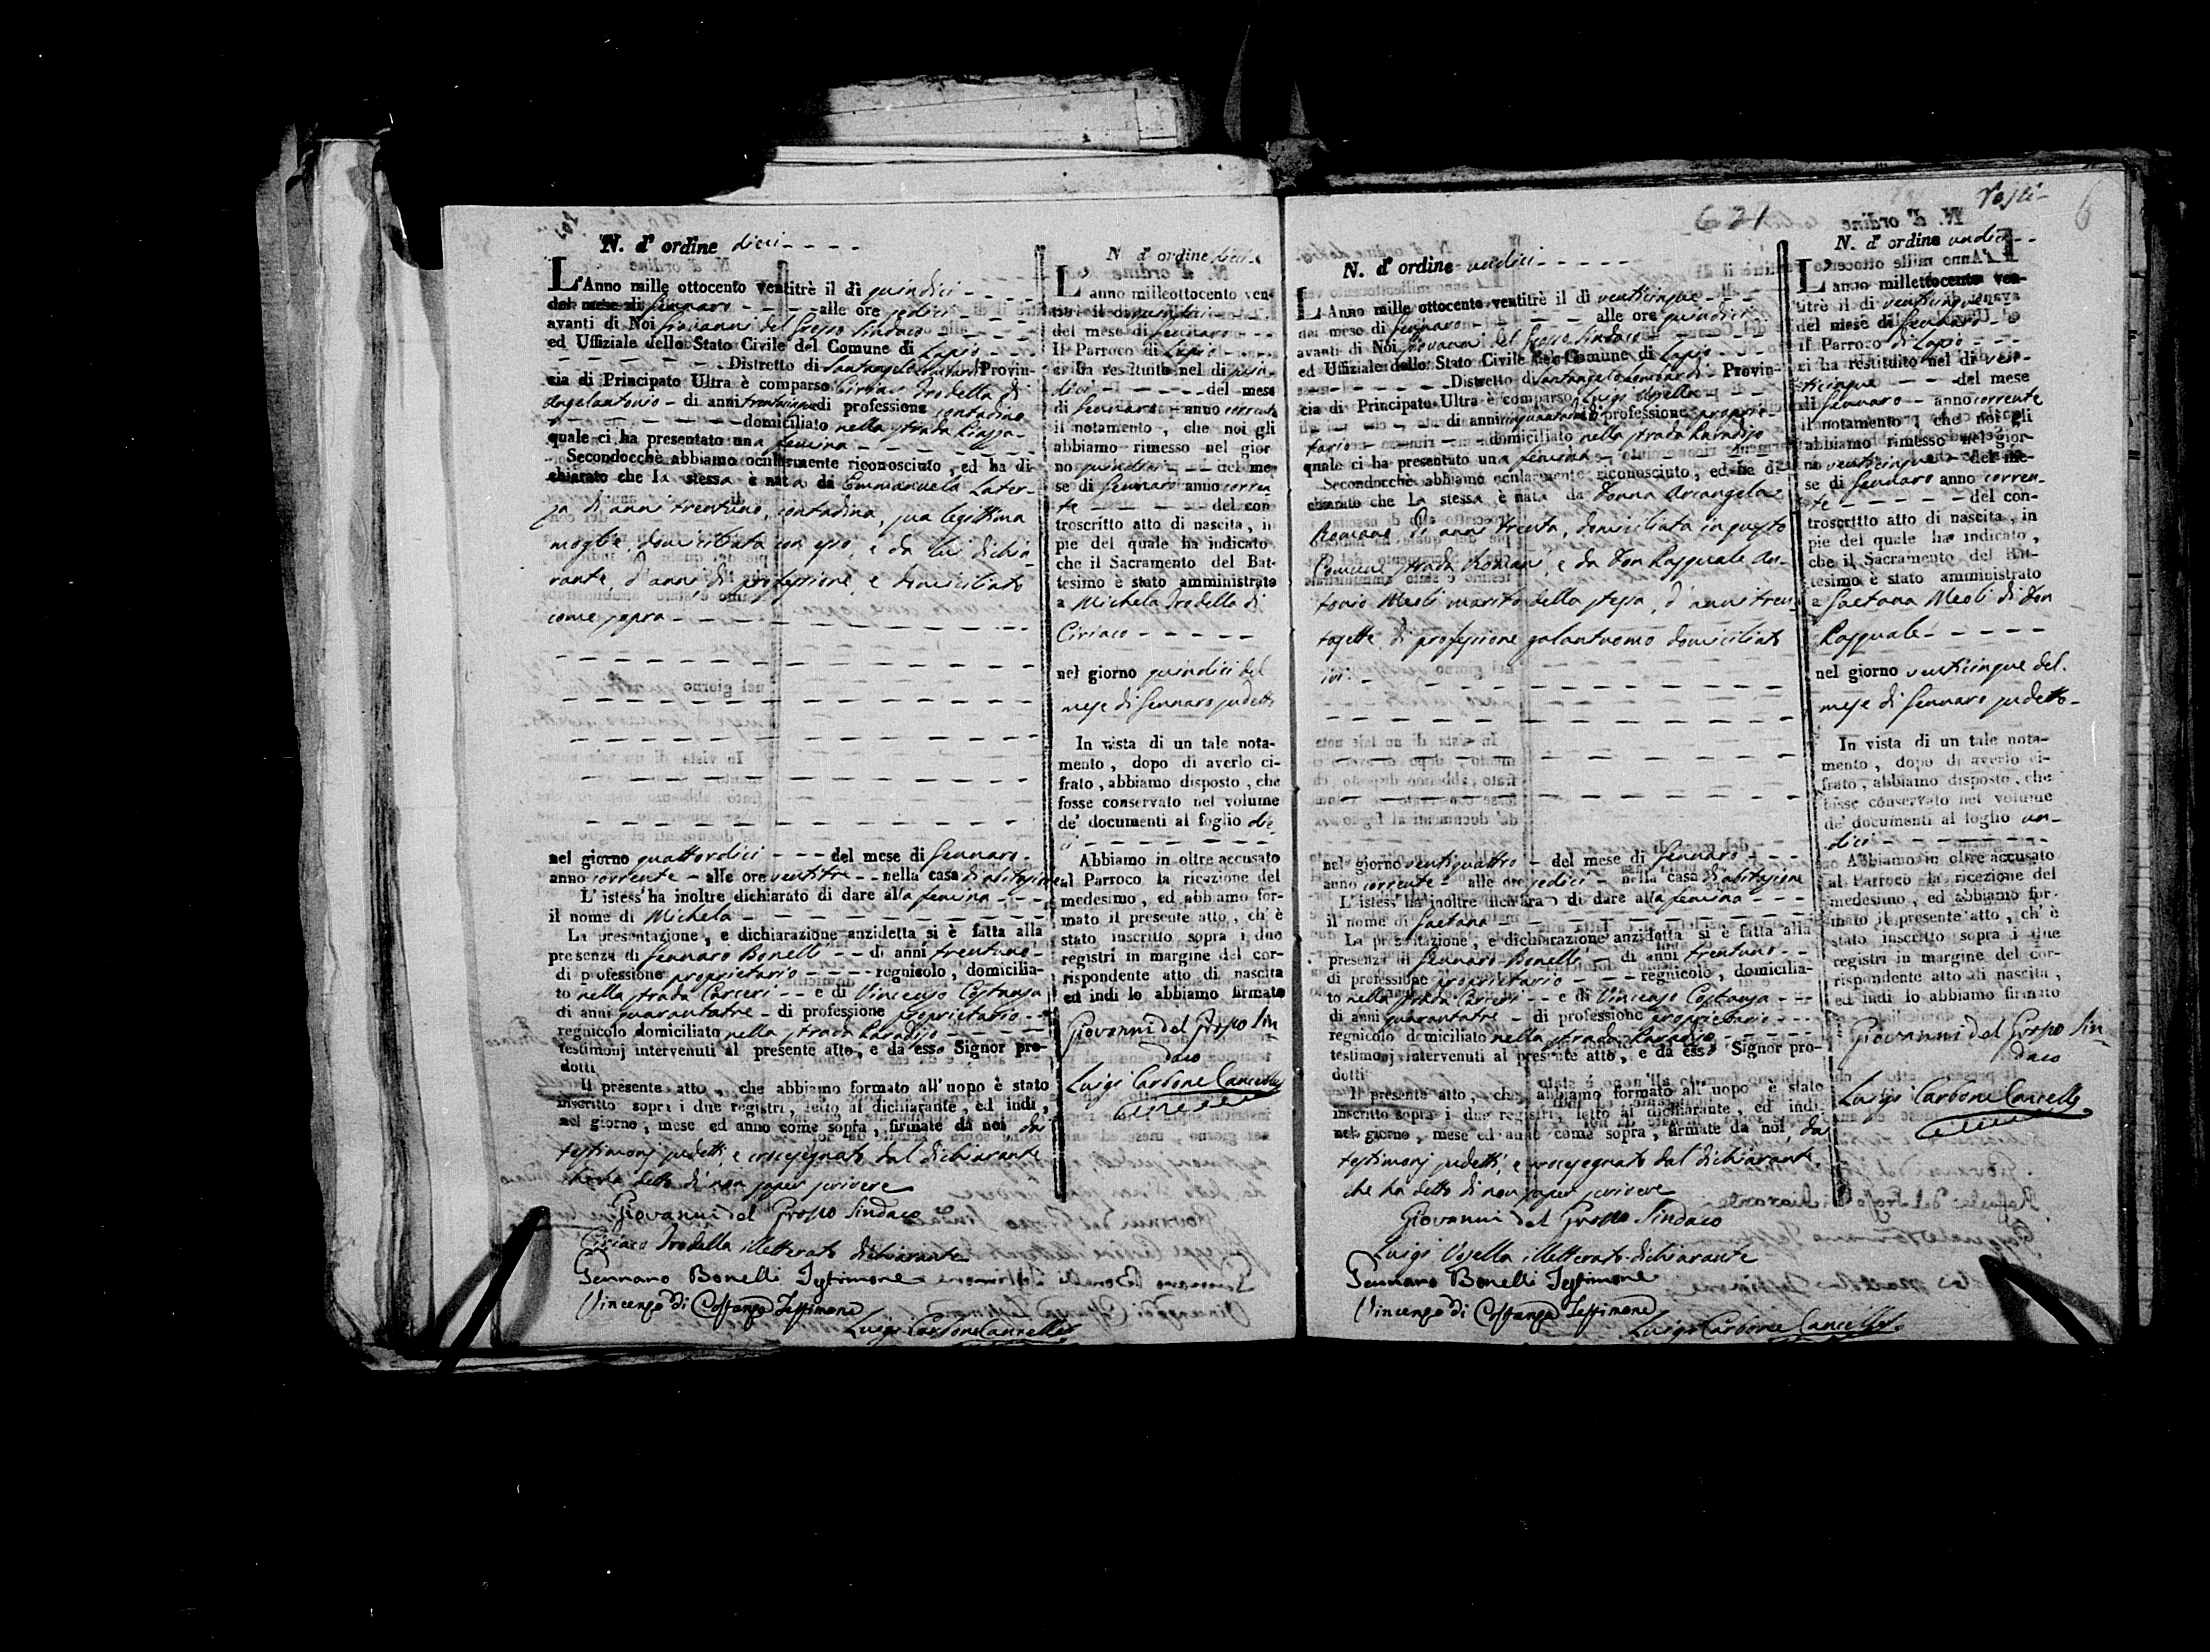 N. d'ordine dieci
L'Anno mille ottocento ventitrè il di quindici
del mese di Gennaro alle ore sedici
avanti di Noi Giovanni del Grosso Sindaco
ed Uffiziale dello Stato Civile del Comune di Lapio
Distretto di Santangelo Lombardi Provin-
cia di Principato Ultra è comparso Ciriaco Irodella di
Angelantonio di anni trentacinque di professione contadino
domiciliato nella strada Piazza
quale ci ha presentato una femina
Secondocchè abbiamo ocularmente riconosciuto, ed ha di-
chiarato che la stessa è nata da Emmanuela Later-
za di anni trentuno, contadina, sua legittima
moglie, domiciliata con esso, e da lui dichia-
rante, d'anni, di professione, e domiciliato
come sopra
nel giorno quattordici del mese di Gennaro
anno corrente alle ore ventitre nella casa di abitazione
L'istess' ha inoltre dichiarato di dare alla femina
il nome di Michela
La presentazione, e dichiarazione anzidetta si è fatta alla
presenza di Gennaro Bonelli di anni trentuno
di professione proprietario regnicolo, domicilia-
to nella strada Carceri e di Vincenzo Costanza
di anni quarantatre di professione proprietario
regnicolo domiciliato nella strada Paradiso
testimonj intervenuti al presente atto, e da esso Signor pro-
dotti
Il presente atto, che abbiamo formato all'uopo è stato
inscritto sopra i due registri, letto al dichiarante, ed indi,
nel giorno, mese ed anno come sopra, firmato da noi da
testimonj sudetti, e crocesegnato dal dichiarante
che ha detto di non saper scrivere
Giovanni del Grosso Sindaco
Ciriaco Irodella illetterato dichiarante
Gennaro Bonelli Testimone
Vincenzo di Costanza Testimone
Luigi Carbone Cancelle
N d'ordine dieci
L'anno milleottocento ven-
titrè il di quindici
del mese di Gennaro
Il Parroco di Lapio
ci ha restituito nel di quin-
dici del mese
di Gennaro anno corrente
il notamento, che noi gli
abbiamo rimesso nel gior
no quindici del me-
se di Gennaro anno corren
te del con
troscritto atto di nascita, in
pie del quale ha indicato
che il Sacramento del Bat-
tesimo è stato amministrato
a Michela Irodella di
Ciriaco
nel giorno quindici del
mese di Gennaro sudetto
In vista di un tale nota-
mento, dopo di averlo ci-
frato, abbiamo disposto, che
fosse conservato nel volume
de' documenti al foglio die
ci
Abbiamo in oltre accusato
al Parroco la ricezione del
medesimo, ed abbiamo for-
mato il presente atto, ch' è
stato inscritto sopra i due
registri in margine del cor-
rispondente atto di nascita
ed indi lo abbiamo firmato
Giovanni del Grosso Sin
daco
Luigi Carbone Cancelle
621
6
N. d'ordine undici
L'Anno mille ottocento ventitrè il di venticinque
del mese di Gennaro alle ore quindici
avanti di Noi Giovanni del Grosso Sindaco
ed Uffiziale dello Stato Civile del Comune di Lapio
Distretto di Santangelo Lombardi Provin-
cia di Principato Ultra è comparso Luigi Osella
di anni cinquantatre di professione proprie-
tario domiciliato nella strada Paradiso
quale ci ha presentato una femina
Secondocchè abbiamo ocularmente riconosciuto, ed ha di-
chiarato che la stessa è nata da Donna Arcangela
Romano, di anni trenta, domiciliata in questo
Comune strada Roman, e da Don Pasquale An-
tonio Meoli marito della stessa, d'anni tren-
tasette di professione galantuomo domiciliato
ivi
nel giorno ventiquattro del mese di Gennaro
anno corrente alle ore sedici nella casa di abitazione
L'istess' ha inoltre dichiarato di dare alla femina
il nome di Gaetana
La presentazione, e dichiarazione anzidetta si è fatta alla
presenza di Gennaro Bonelli di anni trentuno
di professione proprietario regnicolo, domicilia-
to nella strada Carceri e di Vincenzo Costanza
di anni quarantatre di professione proprietario
regnicolo domiciliato nella strada Paradiso
testimonj intervenuti al presente atto, e da esso Signor pro-
dotti
Il presente atto, che abbiamo formato all'uopo è stato
inscritto sopra i due registri, letto al dichiarante, ed indi
nel giorno, mese ed anno come sopra, firmate da noi, da
testimonj sudetti, e crocesegnato dal dichiarante
che ha detto di non saper scrivere
Giovanni del Grosso Sindaco
Luigi Osella illetterato dichiarante
Gennaro Bonelli Testimone
Vincenzo di Costanza Testimone
Luigi Carbone Cancelle
N. d'ordine undici
L'anno millettocento ven-
titrè il di venticinque
del mese di Gennaro
Il Parroco di Lapio
ci ha restituito nel di ven-
ticinque del mese
di Gennaro anno corrente
il notamento, che noi gli
abbiamo rimesso nel gior-
no venticinque del me-
se di Gennaro anno corren-
te del con-
troscritto atto di nascita, in
pie del quale ha indicato,
che il Sacramento del Bat-
tesimo è stato amministrato
a Gaetana Meoli di Don
Pasquale
nel giorno venticinque del
mese di Gennaro sudetto
In vista di un tale nota-
mento, dopo di averlo ci-
frato, abbiamo disposto, che
fosse conservato nel volume
de' documenti al foglio un-
dici
Abbiamo in oltre accusato
al Parroco la ricezione del
medesimo, ed abbiamo for-
mato il presente atto, ch' è
stato inscritto sopra i due
registri in margine del cor-
rispondente atto di nascita,
ed indi lo abbiamo firmato
Giovanni del Grosso Sin
daco
Luigi Carbone Cancelle